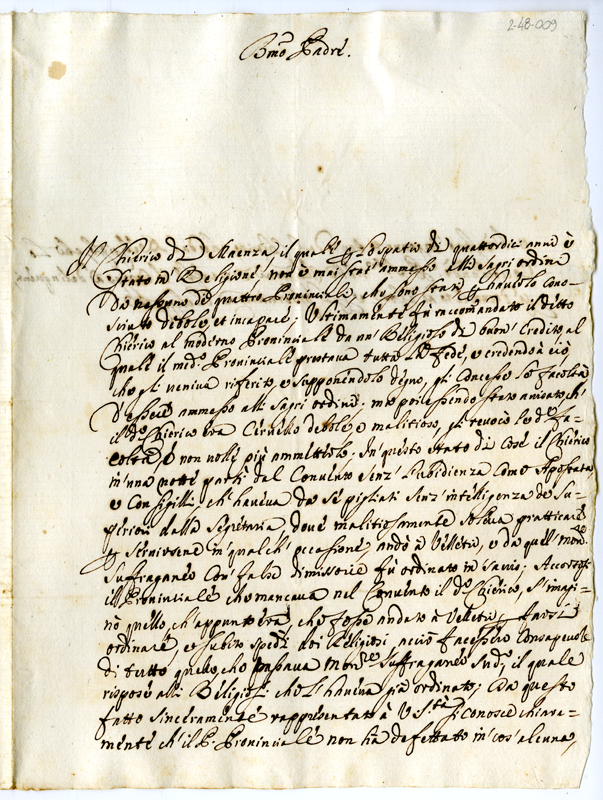 2-48-009
Bmo Padre.
Chierico di Maenza, il quale p lo spatio di quattordici anni è
stato in Religione non è mai stato ammesso alli Sagri ordini
da nessuno de quattro Provinciali, che sono stati p haverlo cono-
sciuto debole, et incapace; Ultimamente fù raccomandato il detto
Chierico al moderno Provinciale da un Religioso di buon' credito, al
quale il medo Provinciale prestava tutta la fede, e credendo à ciò,
che gli veniva riferito, e supponendolo degno, gli concesse la facoltà
d'essere ammesso alli Sagri ordini: mà poi essendo stato avisato ch'
il do Chierico era Cervello debole, e malitioso, gli revocò le de fa-
coltà, e non volle più ammetterlo. In questo stato di Cose il Chierico
in una notte partì dal Convento senz' Vbidienza come Apostata
e Con sigilli, ch'haveva da sé pigliati senz' intelligenza de Su-
periori dalla Segretaria dove malitiosamente soleva pratticare
p servirsene in qualch' occasione, andò à Velletri, e da quel Monre
Suffraganeo Con false dimissorie fù ordinato in Sacris; Accortosi
il Provinciale che mancava nel Convento il do Chierico, s'imagi-
nò quello, ch'appunto era, che fosse andato à Velletri p farsi
ordinare, e subito spedì doi Religiosi acciò facessero Consapevole
di tutto quello, che passava Monre Suffraganeo Sudo, il quale
rispose alli Religiosi che l'haveva già ordinato; Da questo
fatto sinceramente rappresentato à V. Stà si conosce chiara-
mente ch'il P. Provinciale non hà defettato in cos' alcuna,